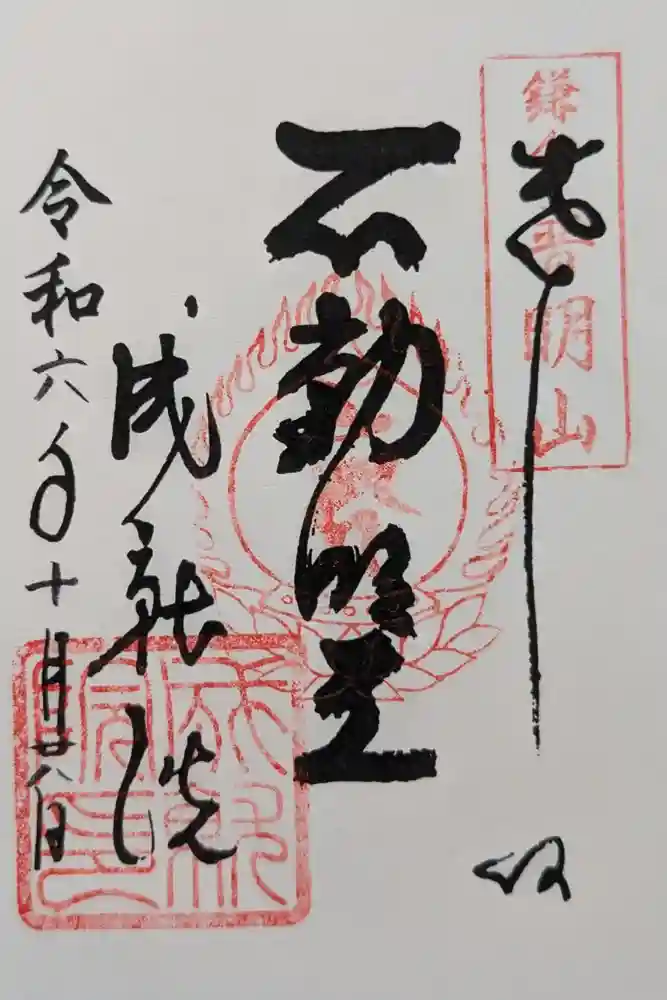 鎌倉普明山
奉拝
不動明王
成就院
令和六年十月廿八日
成就院印